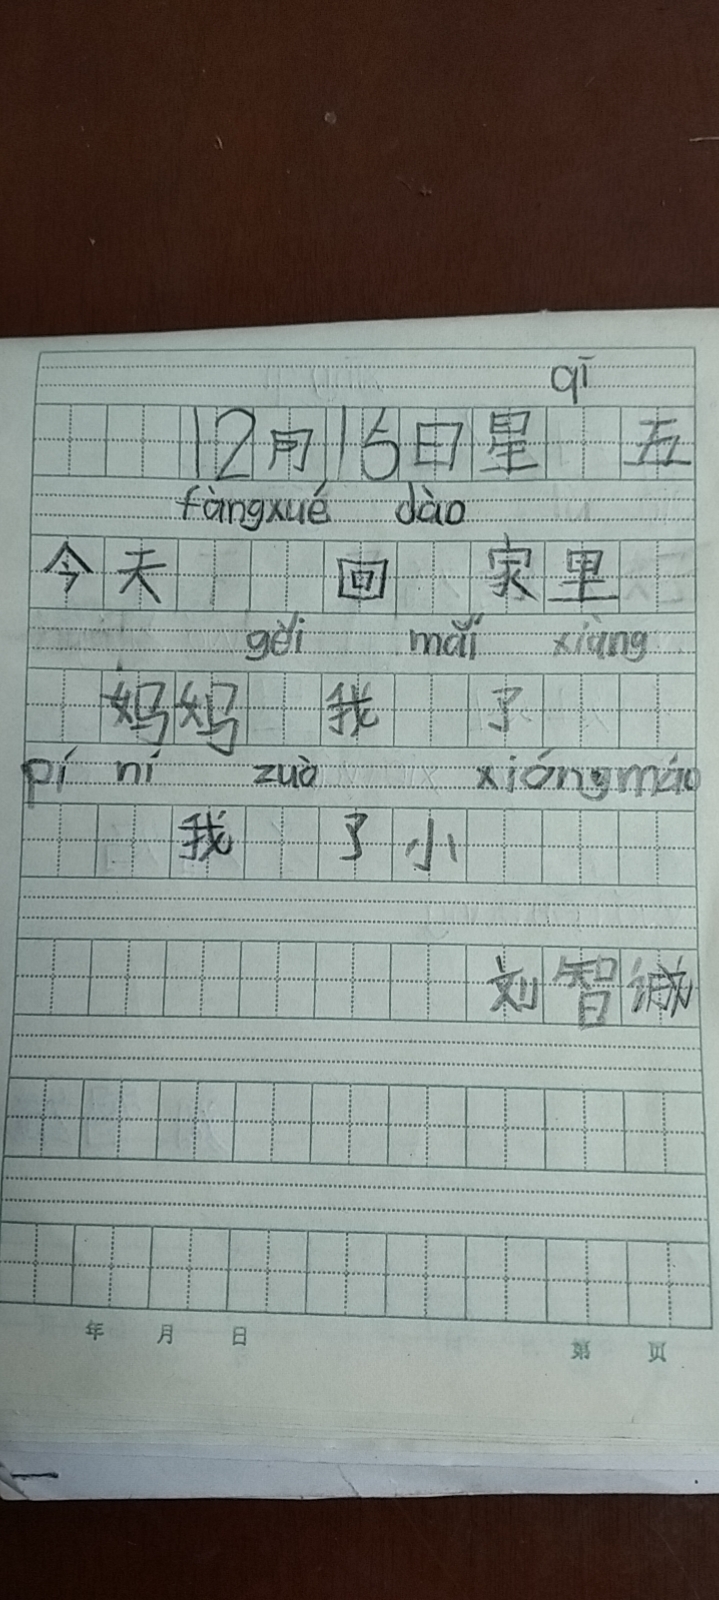 qī
12月16日星 五
fàngxué dào
今天 回 家里
gěi mǎi xiàng
妈妈 我 了
pí ní zuò xióngmáo
我 了小
刘智诚
年 月 日 第 页